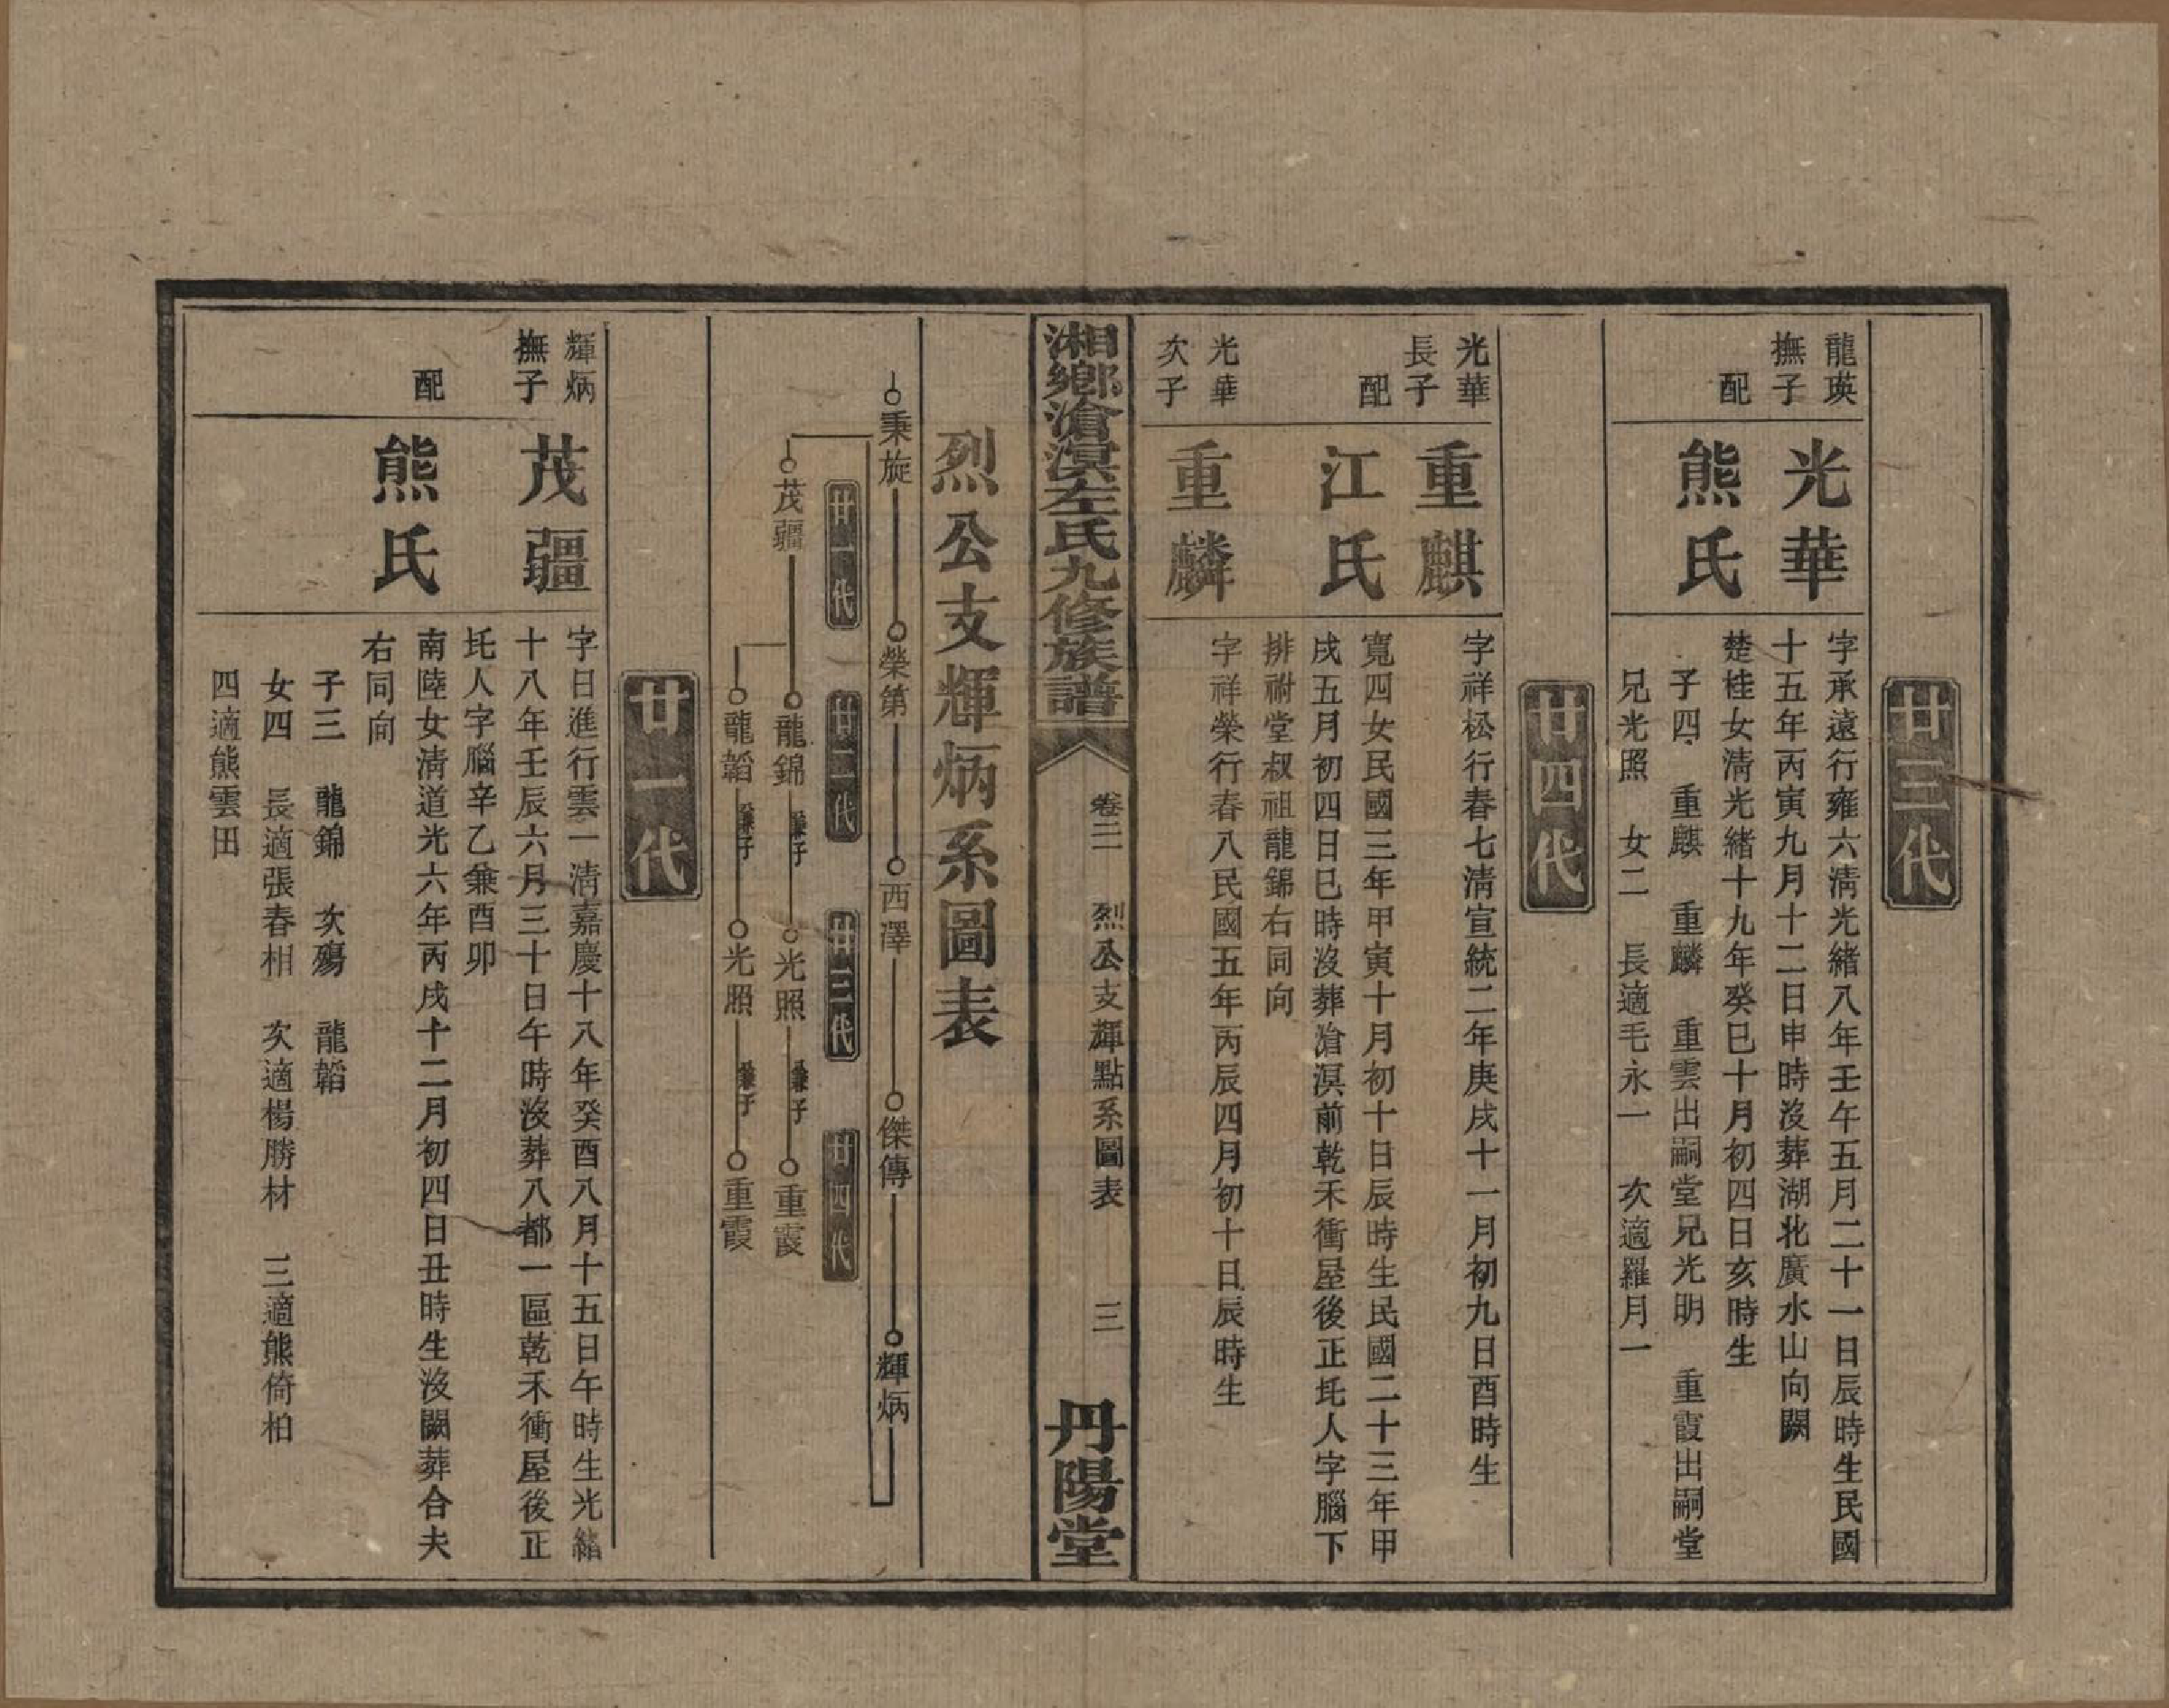 廿三代
龍瑛
撫子
光華
字承遠行雍六淸光緒八年壬午五月二十一日辰時生民國
十五年丙寅九月十二日申時沒葬湖北廣水山向闕
配
熊氏
楚桂女淸光緒十九年癸巳十月初四日亥時生
子四 重麒 重麟 重雲出嗣堂兄光明 重霞出嗣堂
兄光照 女二 長適毛永一 次適羅月一
廿四代
光華
長子
重麒
字祥松行春七淸宣統二年庚戌十一月初九日酉時生
配
江氏
寬四女民國三年甲寅十月初十日辰時生民國二十三年甲
戌五月初四日巳時沒葬滄溟前乾禾衝屋後正坉人字腦下
排祔堂叔祖龍錦右同向
光華
次子
重麟
字祥榮行春八民國五年丙辰四月初十日辰時生
湘鄉滄溟左氏九修族譜
卷三 烈公支輝點系圖表 三
丹陽堂
烈公支輝炳系圖表
秉旋 榮第 西澤 傑傳 輝炳
廿一代 廿二代 廿三代 廿四代
茂疆 龍錦 兼子 光照 兼子 重霞
龍韜 兼子 光照 兼子 重霞
廿一代
輝炳
撫子
茂疆
字日進行雲一淸嘉慶十八年癸酉八月十五日午時生光緒
十八年壬辰六月三十日午時沒葬八都一區乾禾衝屋後正
坉人字腦辛乙兼酉卯
配
熊氏
南陸女淸道光六年丙戌十二月初四日丑時生沒闕葬合夫
右同向
子三 龍錦 次殤 龍韜
女四 長適張春相 次適楊勝材 三適熊倚柏
四適熊雲田